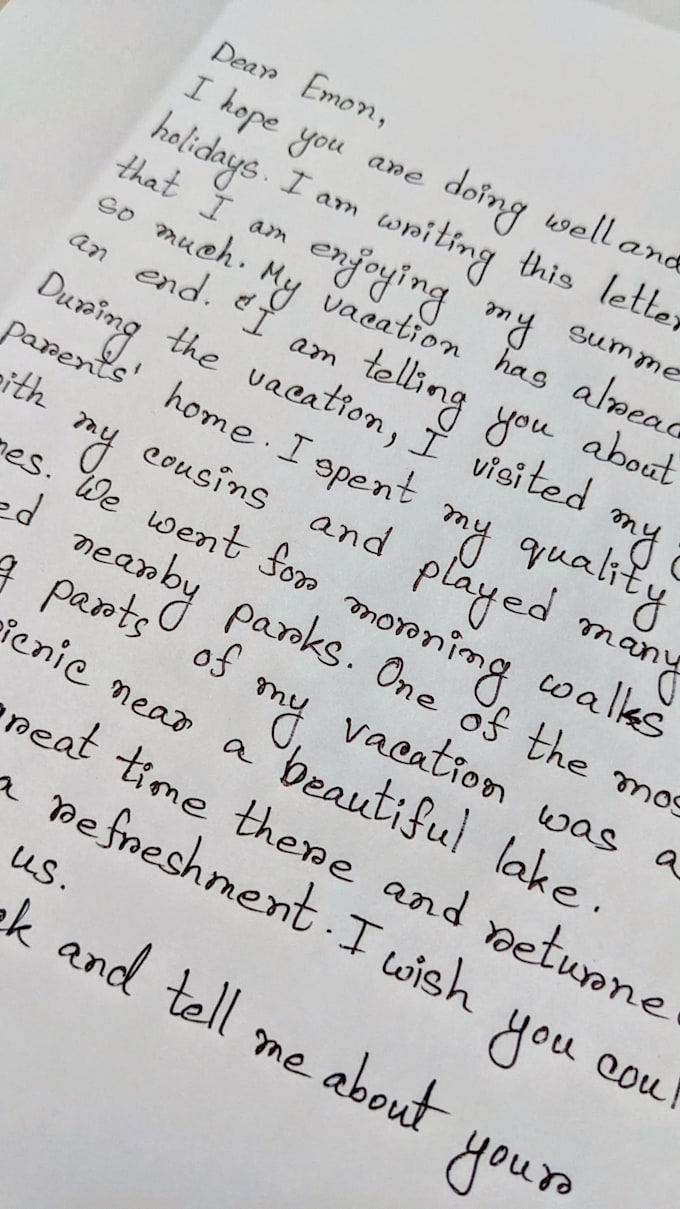 Dear Emon,
I hope you are doing well and
holidays. I am writing this letter
that I am enjoying my summe
so much. My vacation has alread
an end. I am telling you about
During the vacation, I visited my
parents' home. I spent my quality
with my cousins and played many
mes. We went for morning walks
ed nearby parks. One of the mos
g parts of my vacation was a
picnic near a beautiful lake.
great time there and returned
a refreshment. I wish you coul
us.
ck and tell me about your